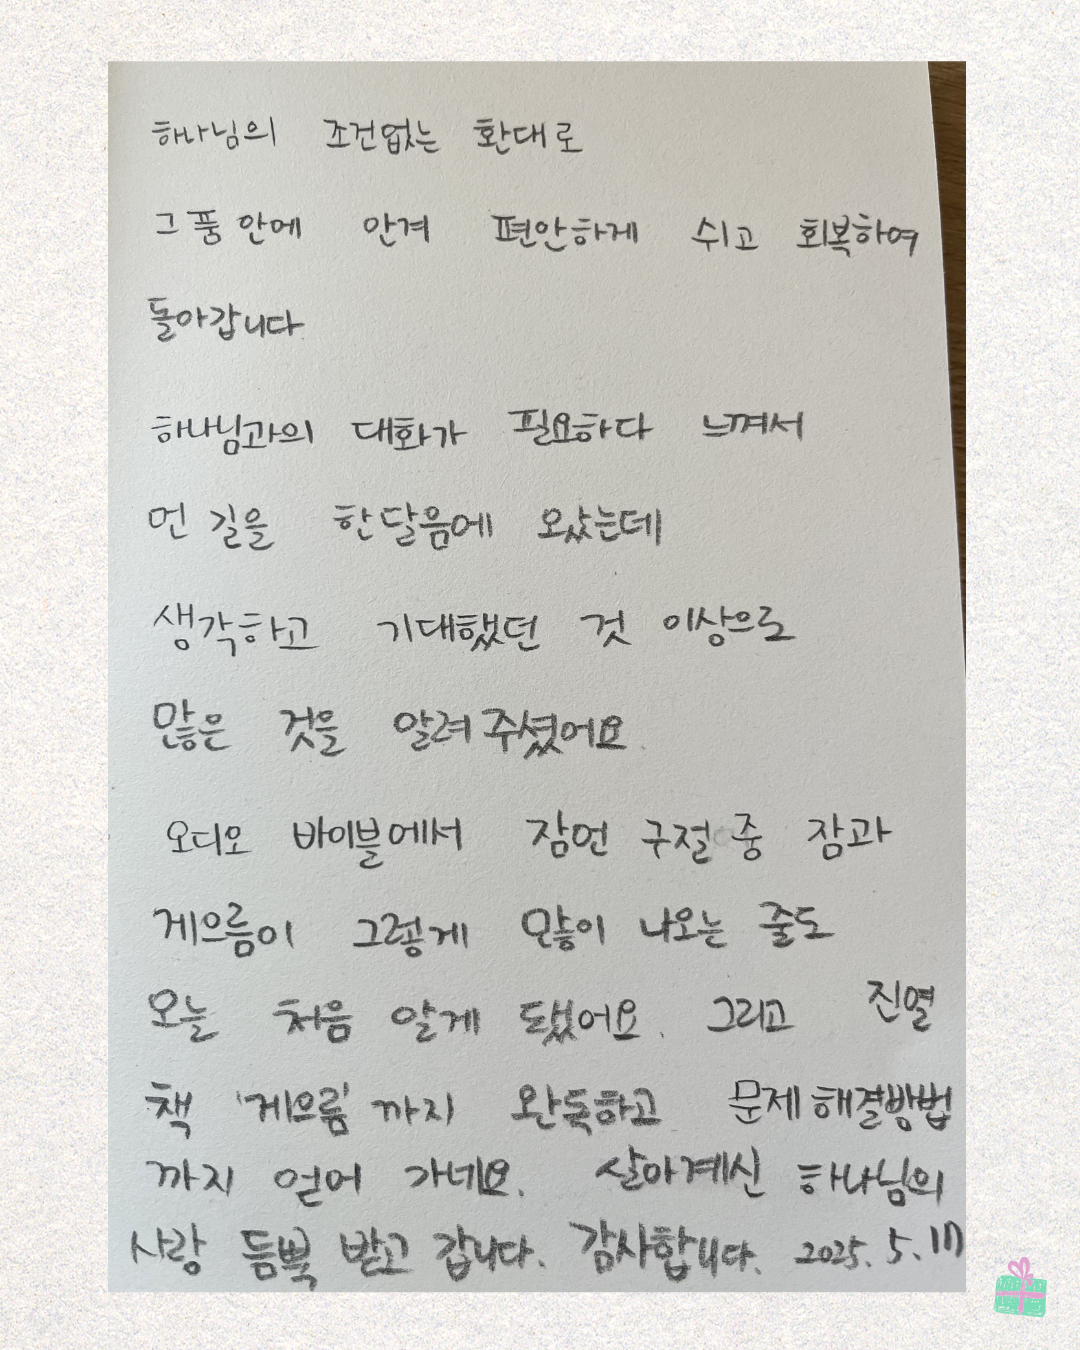 하나님의 조건없는 환대로
그 품 안에 안겨 편안하게 쉬고 회복하여
돌아갑니다
하나님과의 대화가 필요하다 느껴서
먼 길을 한달음에 왔는데
생각하고 기대했던 것 이상으로
많은 것을 알려주셨어요
오디오 바이블에서 잠언 구절 중 잠과
게으름이 그렇게 많이 나오는 줄도
오늘 처음 알게 됐어요. 그리고 진열
책 '게으름'까지 완독하고 문제해결방법
까지 얻어 가네요. 살아계신 하나님의
사랑 듬뿍 받고 갑니다. 감사합니다. 2025. 5. 17